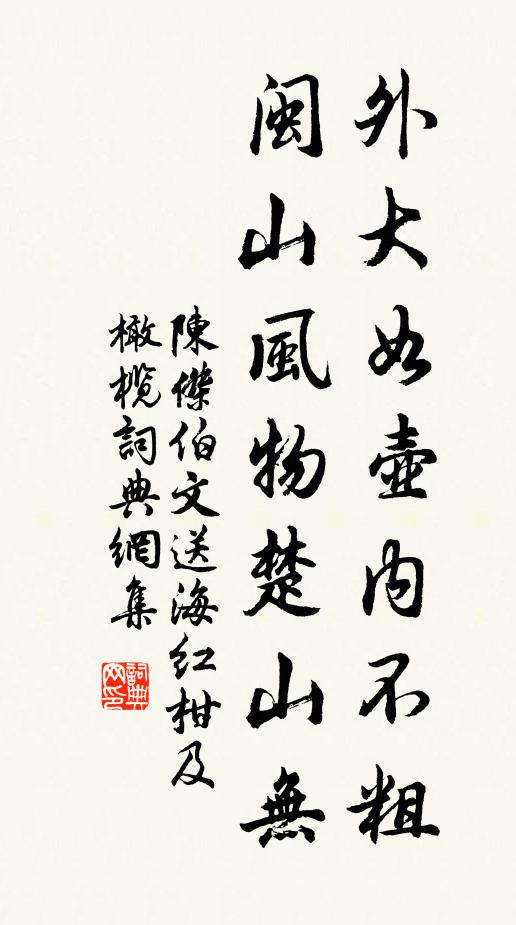 外大如壺内不粗
閩山風物楚山無
陳傑伯文送海紅柑及
橄欖詞典網集
詞典網印